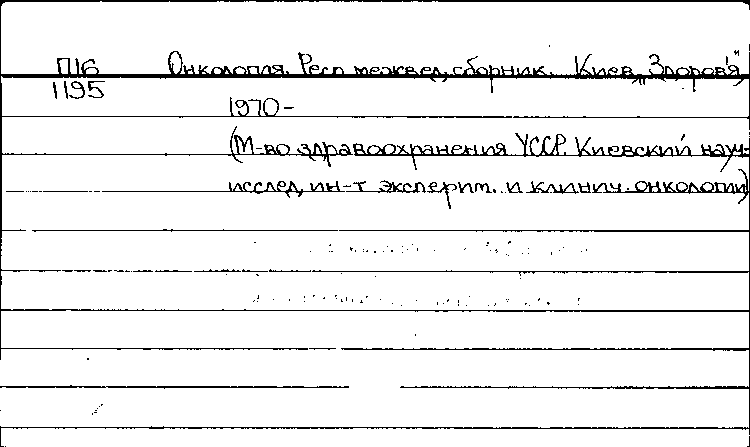 П16 Онкология. Респ. межвед. сборник. Киев, „Здоров'я",
1195
1970-
(М-во здравоохранения УССР. Киевский науч.-
исслед. ин-т эксперим. и клинич. онкологии)